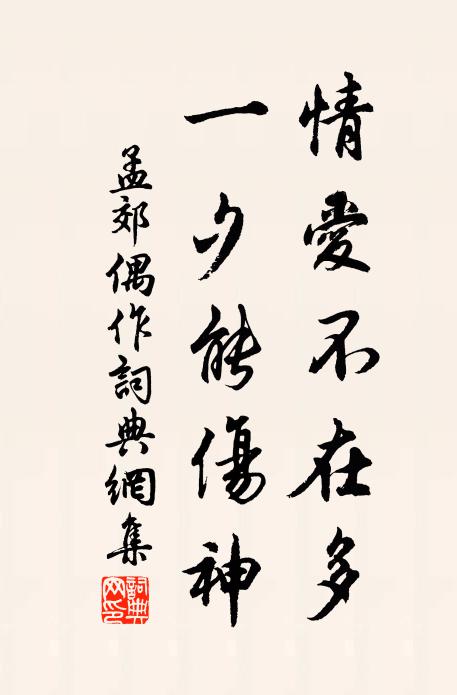 情愛不在多
一夕能傷神
孟郊偶作詞典網集
詞典網印